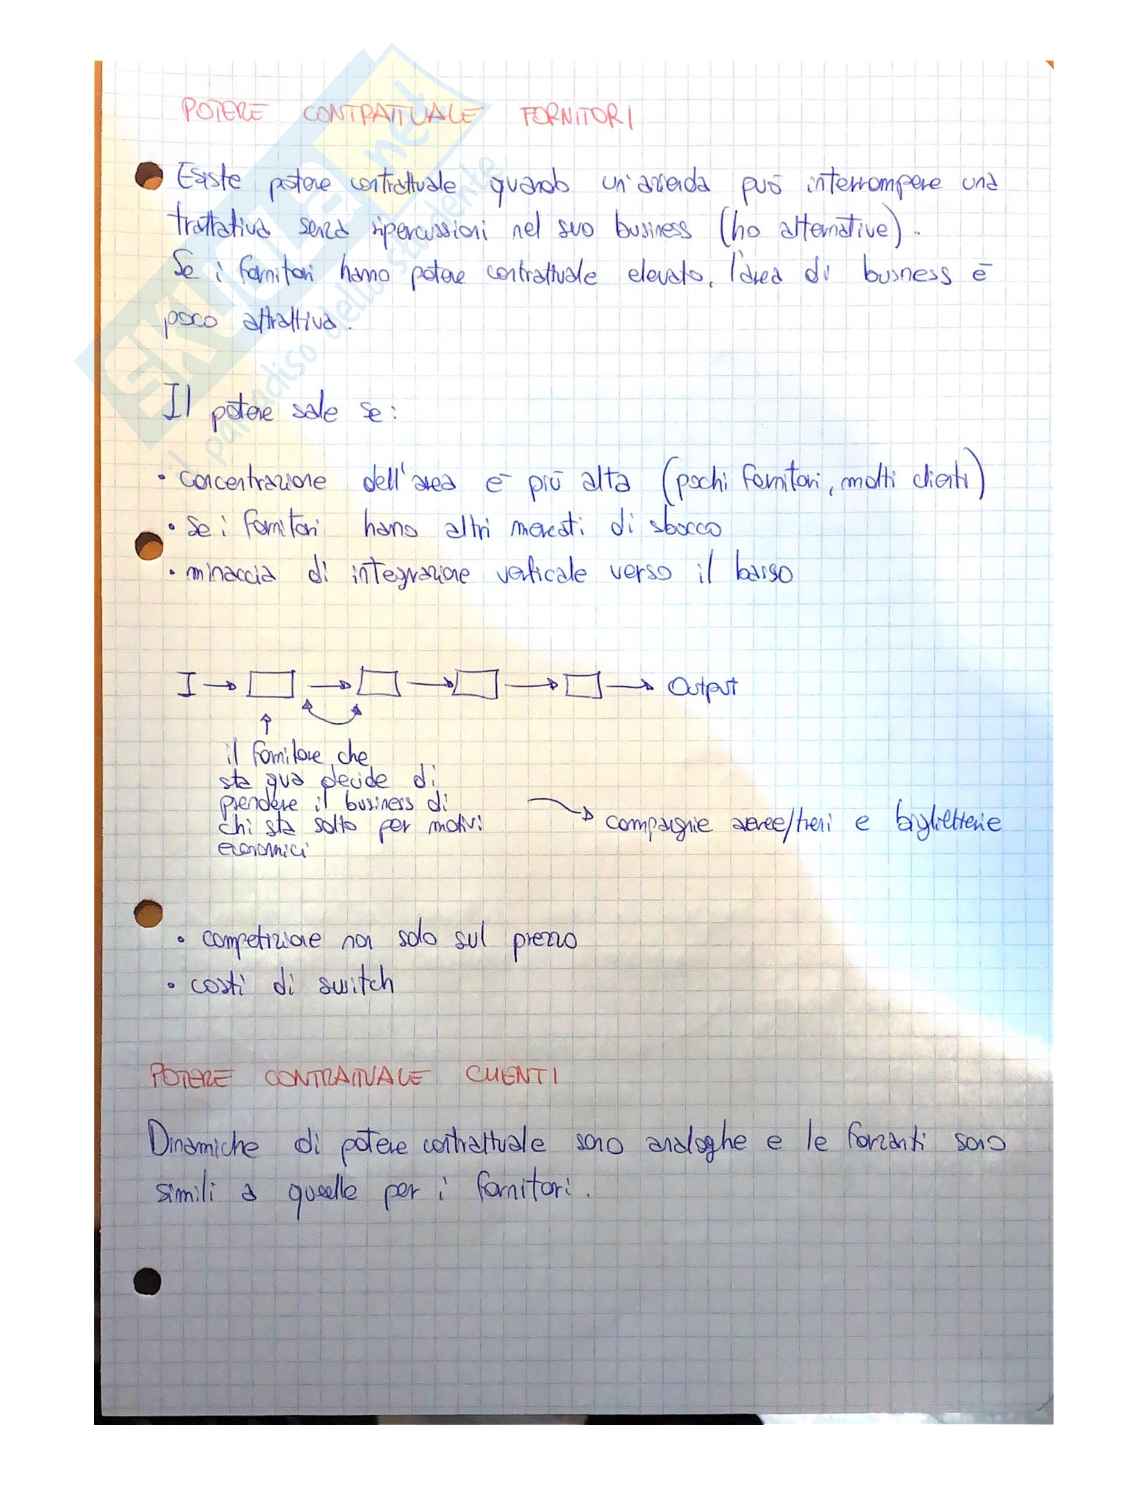 POTERE CONTRATTUALE FORNITORI
Esiste potere contrattuale quando un'azienda può interrompere una
trattativa senza ripercussioni nel suo business (ho alternative).
Se i fornitori hanno potere contrattuale elevato, l'area di business è
poco attrattiva.
Il potere sale se:
• concentrazione dell'area è più alta (pochi fornitori, molti clienti)
• Se i fornitori hanno altri mercati di sbocco
• minaccia di integrazione verticale verso il basso
I → → → → → Output
il fornitore che
sta qua decide di
prendere il business di
chi sta sotto per motivi
economici
→ compagnie aeree/treni e biglietterie
• competizione non solo sul prezzo
• costi di switch
POTERE CONTRATTUALE CLIENTI
Dinamiche di potere contrattuale sono analoghe e le forzanti sono
simili a quelle per i fornitori.
SKUOLA.net
il paradiso dello studente